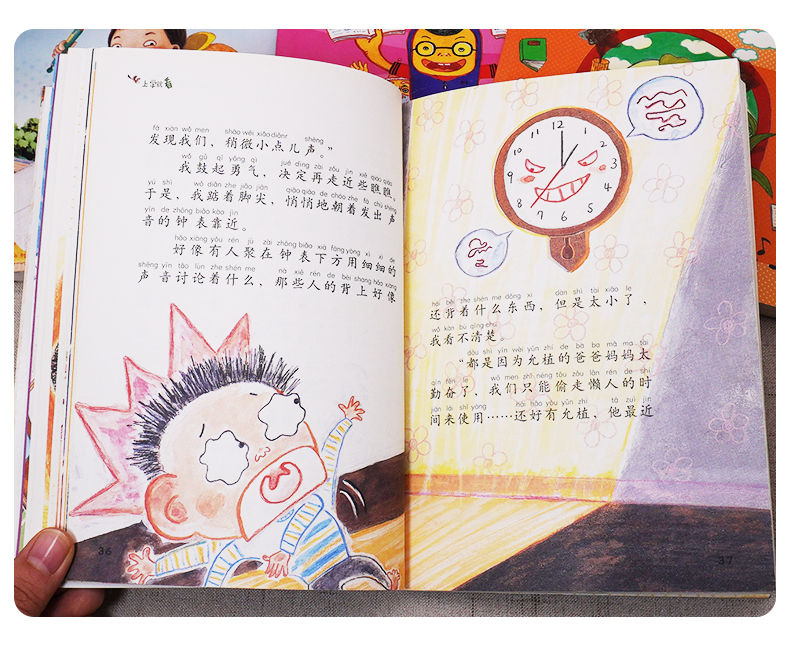 上学就看
fā xiàn wǒ men shāo wēi xiǎo diǎnr shēng
发现我们，稍微小点儿声。”
wǒ gǔ qǐ yǒng qì jué dìng zài zǒu jìn xiē qiáo qiao
我鼓起勇气，决定再走近些瞧瞧。
yú shì wǒ diǎn zhe jiǎo jiān qiāo qiāo de cháo zhe fā chū shēng
于是，我踮着脚尖，悄悄地朝着发出声
yīn de zhōng biǎo kào jìn
音的钟表靠近。
hǎo xiàng yǒu rén jù zài zhōng biǎo xià fāng yòng xì xì de
好像有人聚在钟表下方用细细的
shēng yīn tǎo lùn zhe shén me nà xiē rén de bèi shang hǎo xiàng
声音讨论着什么，那些人的背上好像
36
12
1
2
3
4
5
6
7
8
9
10
11
hái bēi zhe shén me dōng xi dàn shì tài xiǎo le
还背着什么东西，但是太小了，
wǒ kàn bù qīng chu
我看不清楚。
dōu shì yīn wèi yǔn zhí de bà ba mā ma tài
“都是因为允植的爸爸妈妈太
qín fèn le wǒ men zhǐ néng tōu zǒu lǎn rén de shí
勤奋了，我们只能偷走懒人的时
jiān lái shǐ yòng hái hǎo yǒu yǔn zhí tā zuì jìn
间来使用……还好有允植，他最近
37